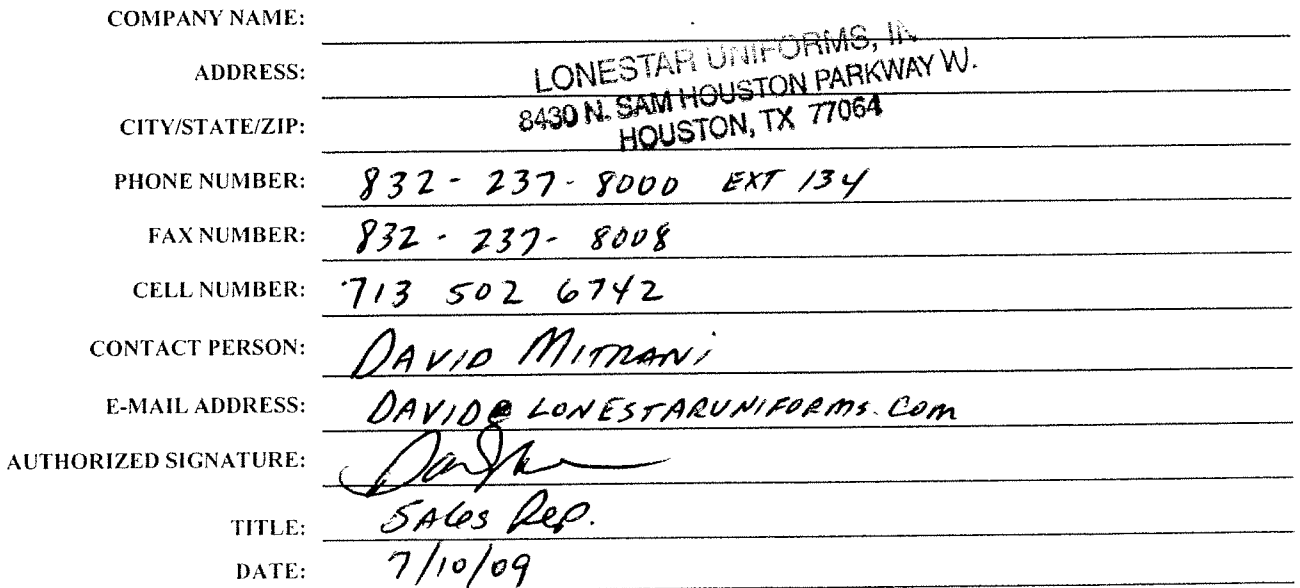 COMPANY NAME:
LONESTAR UNIFORMS, IN
ADDRESS: 8430 N. SAM HOUSTON PARKWAY W.
CITY/STATE/ZIP: HOUSTON, TX 77064
PHONE NUMBER: 832-237-8000 EXT 134
FAX NUMBER: 832-237-8008
CELL NUMBER: 713 502 6742
CONTACT PERSON: DAVID MITRANi
E-MAIL ADDRESS: DAVID@LONESTARUNIFORMS.Com
AUTHORIZED SIGNATURE:
TITLE: SALes Rep.
DATE: 7/10/09